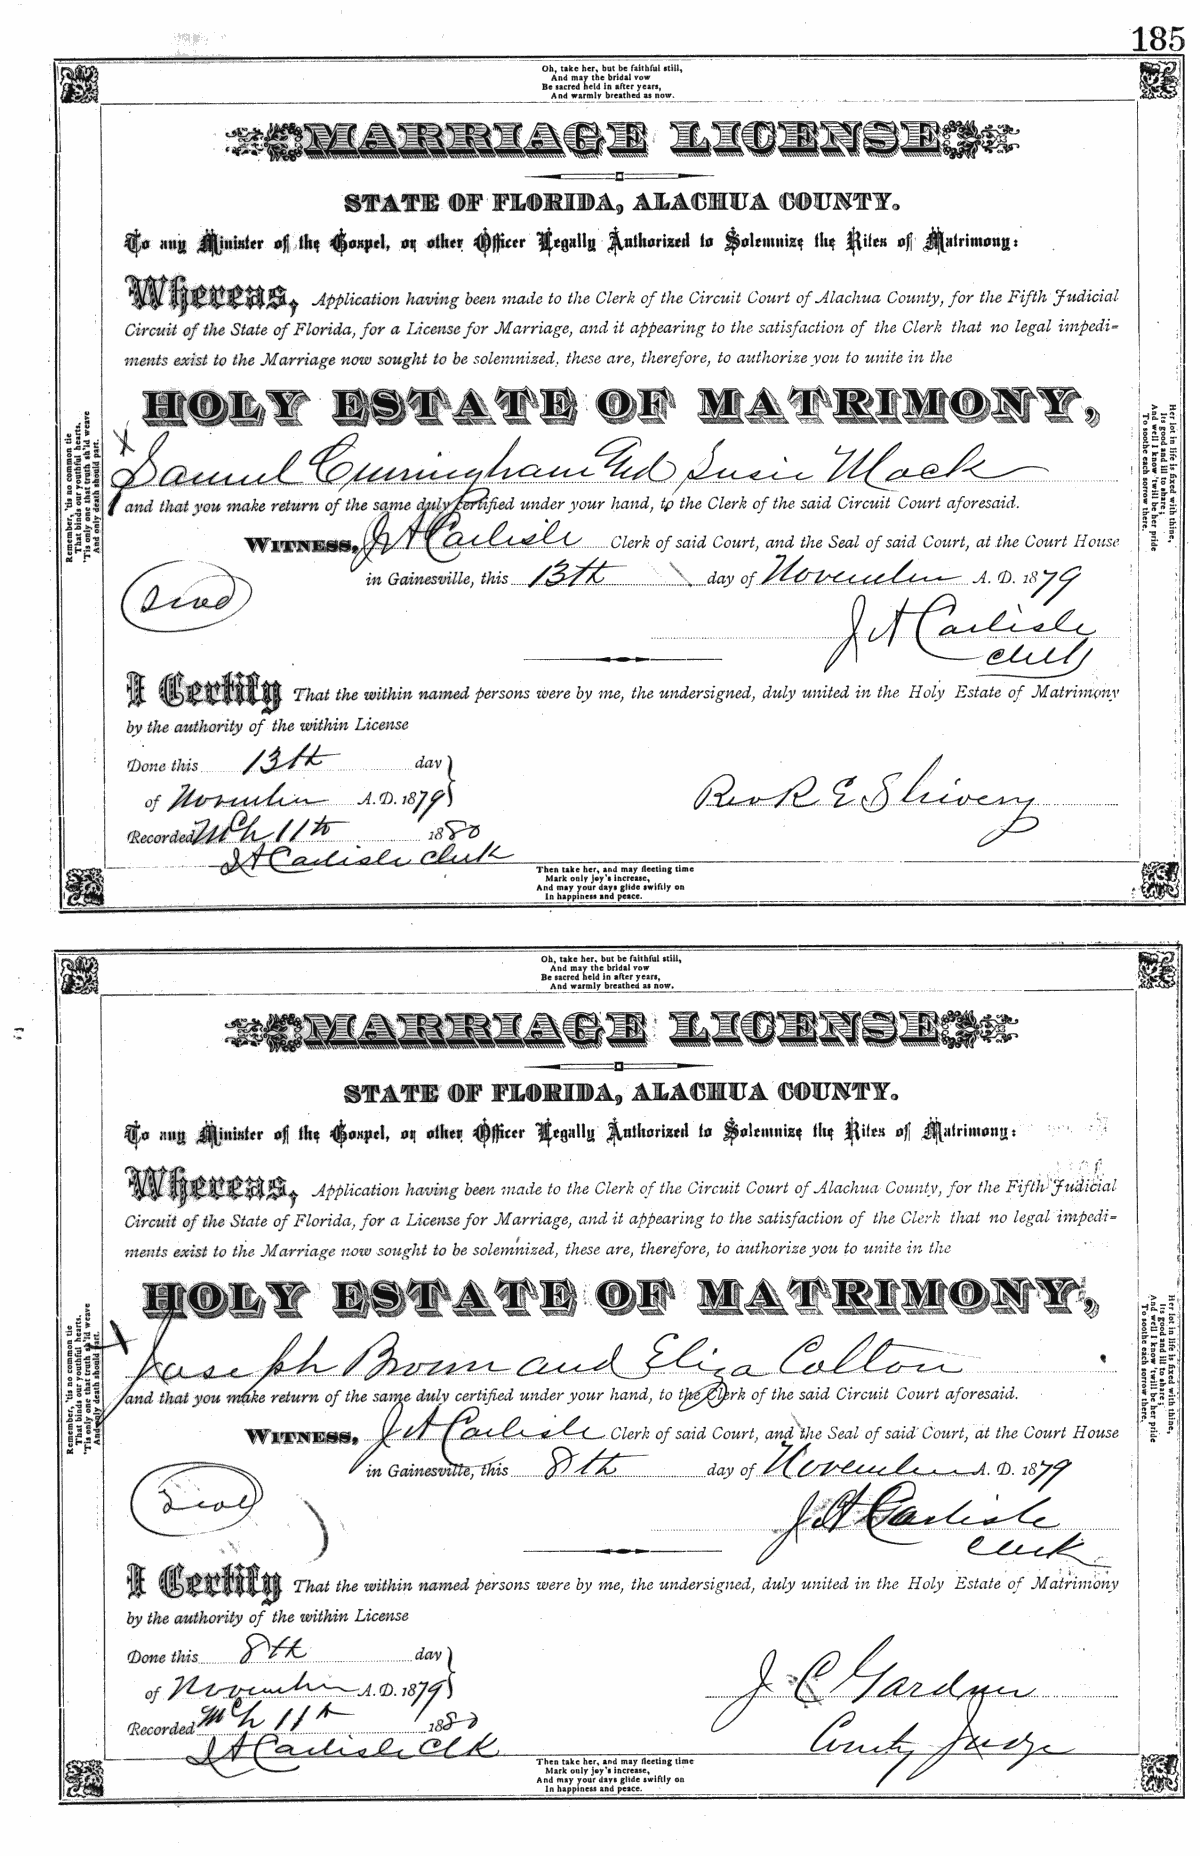 185
Oh, take her, but be faithful still,
And may the bridal vow
Be sacred held in after years,
And warmly breathed as now.
MARRIAGE LICENSE
STATE OF FLORIDA, ALACHUA COUNTY.
To any Minister of the Gospel, or other Officer Legally Authorized to Solemnize the Rites of Matrimony:
Whereas, Application having been made to the Clerk of the Circuit Court of Alachua County, for the Fifth Judicial
Circuit of the State of Florida, for a License for Marriage, and it appearing to the satisfaction of the Clerk that no legal impedi-
ments exist to the Marriage now sought to be solemnized, these are, therefore, to authorize you to unite in the
HOLY ESTATE OF MATRIMONY,
Samuel Cunningham And Susie Mack
and that you make return of the same duly certified under your hand, to the Clerk of the said Circuit Court aforesaid.
WITNESS, J A Carlisle Clerk of said Court, and the Seal of said Court, at the Court House
in Gainesville, this 13th day of November A. D. 1879
J A Carlisle
Clerk
I Certify That the within named persons were by me, the undersigned, duly united in the Holy Estate of Matrimony
by the authority of the within License
Done this 13th day
of November A. D. 1879
Rev R E Shivery
Recorded Mch 11th 1880
J A Carlisle Clerk
Remember, 'tis no common tie
That binds our youthful hearts.
'Tis only one that truth sh'ld weave
And only death should part.
Her lot in life is fixed with thine,
Its good and ill to share;
And well I know 'twill be her pride
To soothe each sorrow there.
Then take her, and may fleeting time
Mark only joy's increase,
And may your days glide swiftly on
In happiness and peace.
Oh, take her, but be faithful still,
And may the bridal vow
Be sacred held in after years,
And warmly breathed as now.
MARRIAGE LICENSE
STATE OF FLORIDA, ALACHUA COUNTY.
To any Minister of the Gospel, or other Officer Legally Authorized to Solemnize the Rites of Matrimony:
Whereas, Application having been made to the Clerk of the Circuit Court of Alachua County, for the Fifth Judicial
Circuit of the State of Florida, for a License for Marriage, and it appearing to the satisfaction of the Clerk that no legal impedi-
ments exist to the Marriage now sought to be solemnized, these are, therefore, to authorize you to unite in the
HOLY ESTATE OF MATRIMONY,
Joseph Brown and Eliza Colton
and that you make return of the same duly certified under your hand, to the Clerk of the said Circuit Court aforesaid.
WITNESS, J A Carlisle Clerk of said Court, and the Seal of said Court, at the Court House
in Gainesville, this 8th day of November A. D. 1879
J A Carlisle
Clerk
I Certify That the within named persons were by me, the undersigned, duly united in the Holy Estate of Matrimony
by the authority of the within License
Done this 8th day
of November A. D. 1879
J C Gardner
Recorded Mch 11th 1880
County Judge
J A Carlisle Clk
Remember, 'tis no common tie
That binds our youthful hearts.
'Tis only one that truth sh'ld weave
And only death should part.
Her lot in life is fixed with thine,
Its good and ill to share;
And well I know 'twill be her pride
To soothe each sorrow there.
Then take her, and may fleeting time
Mark only joy's increase,
And may your days glide swiftly on
In happiness and peace.